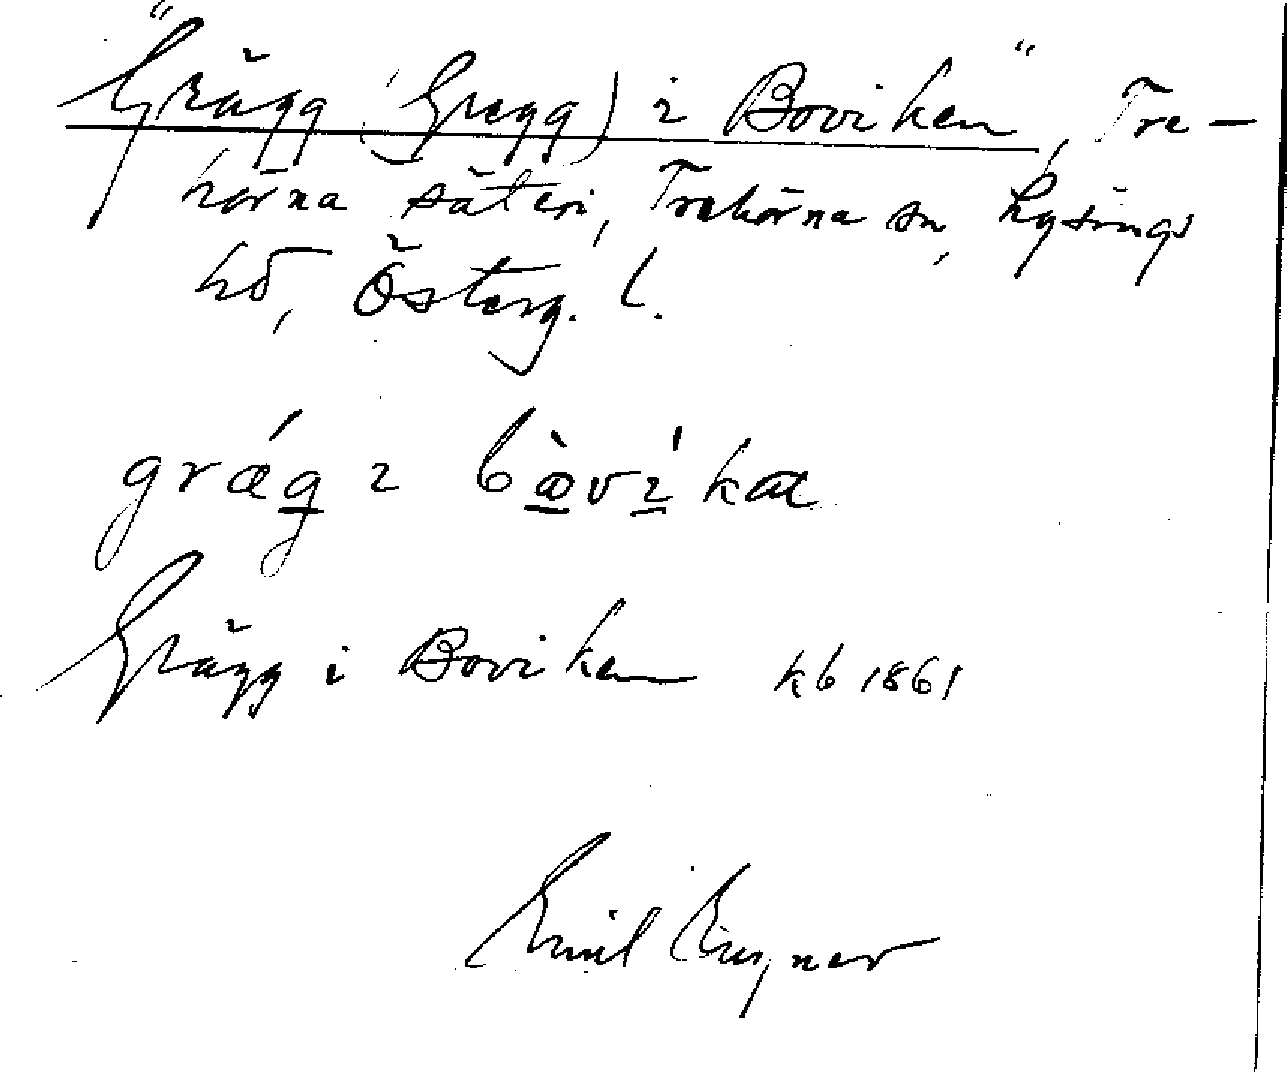 "Grägg (Gregg) i Boviken", Tre-
hörna säteri, Trehörna sn, Lysings
hd, Österg. l.
grǽg ɩ bꝏ̀vɩ̍ka
Grägg i Boviken kb 1861
Emil